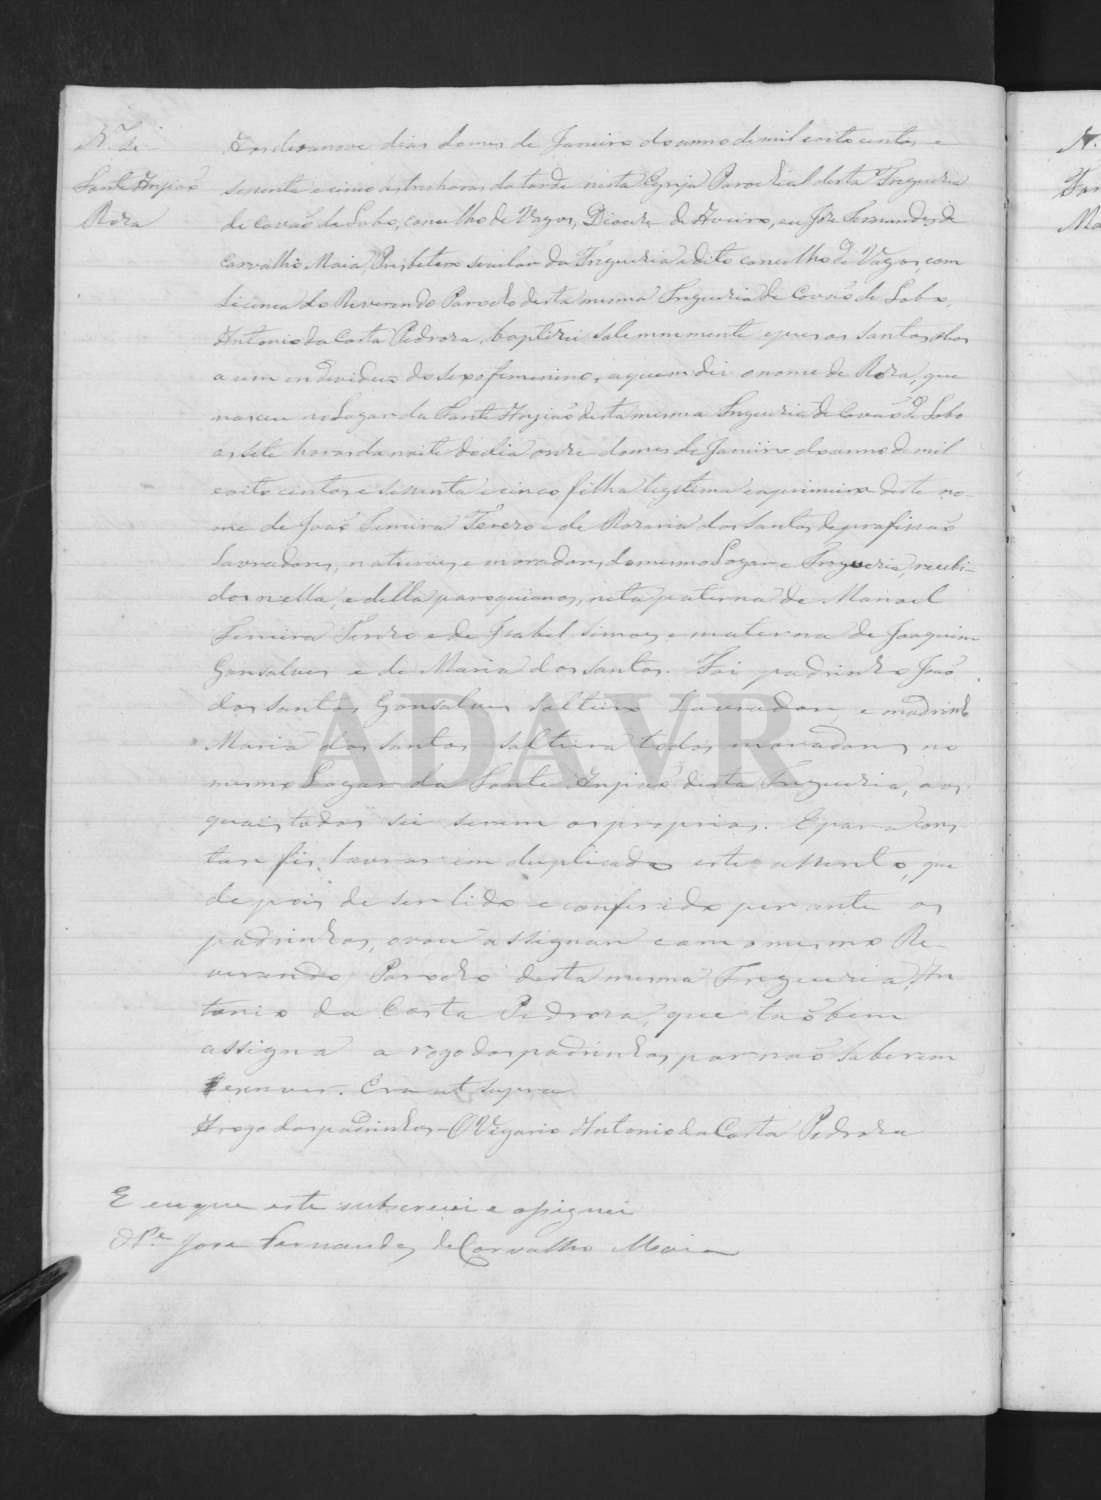 N.º
Santo Anjião
Roza
Aos desanove dias do mes de Janeiro do anno de mil oito centos e
secenta e cinco ás tres horas da tarde nesta Egreja Parochial desta Freguezia
de Covão do Lobo, concelho de Vagos, Diocese de Aveiro, eu José Fernandes de
Carvalho Maia, Presbitero secular da Freguezia e dito concelho de Vagos, com
licença do Reverendo Parocho desta mesma Freguezia de Covão do Lobo,
Antonio da Costa Pedroza, baptizei solemnemente e puz os santos olios
a um individuo do sexo femenino, a quem dei o nome de Roza, que
nasceu no Logar da Fonte Anjião desta mesma Freguezia de Covão do Lobo
as sete horas da noite do dia onze do mes de Janeiro do anno de mil
oito centos e secenta e cinco, filha legitima e a primeira deste no-
me de João Ferreira Terezo e de Rozaria dos Santos, de profissão
Lavradores, naturaes e moradores do mesmo Logar e Freguezia, recebi-
dos nella, e della paroquianos, neta paterna de Manoel
Ferreira Terezo e de Izabel Simoes e materna de Joaquim
Gonsalves e de Maria dos Santos. Foi padrinho João
dos Santos Gonsalves solteiro Lavrador, e madrinha
Maria dos Santos solteira todos moradores no
mesmo Logar da Fonte Anjião desta Freguezia, aos
quais todos sei serem os proprios. E para cons
tar fis lavrar em duplicado este assento, que
depois de ser lido e conferido perante os
padrinhos, o vou assignar com o mesmo Re-
verendo Parocho desta mesma Freguezia, An
tonio da Costa Pedroza, que taobem
assigna a rogo dos padrinhos, por não saberem
escrever. Era ut supra
A rogo dos padrinhos - O Vigario Antonio da Costa Pedroza
E eu que este subscrevi e assignei
O P.e Jose Fernandes de Carvalho Maia
ADAVR
N.
Fon
Ma